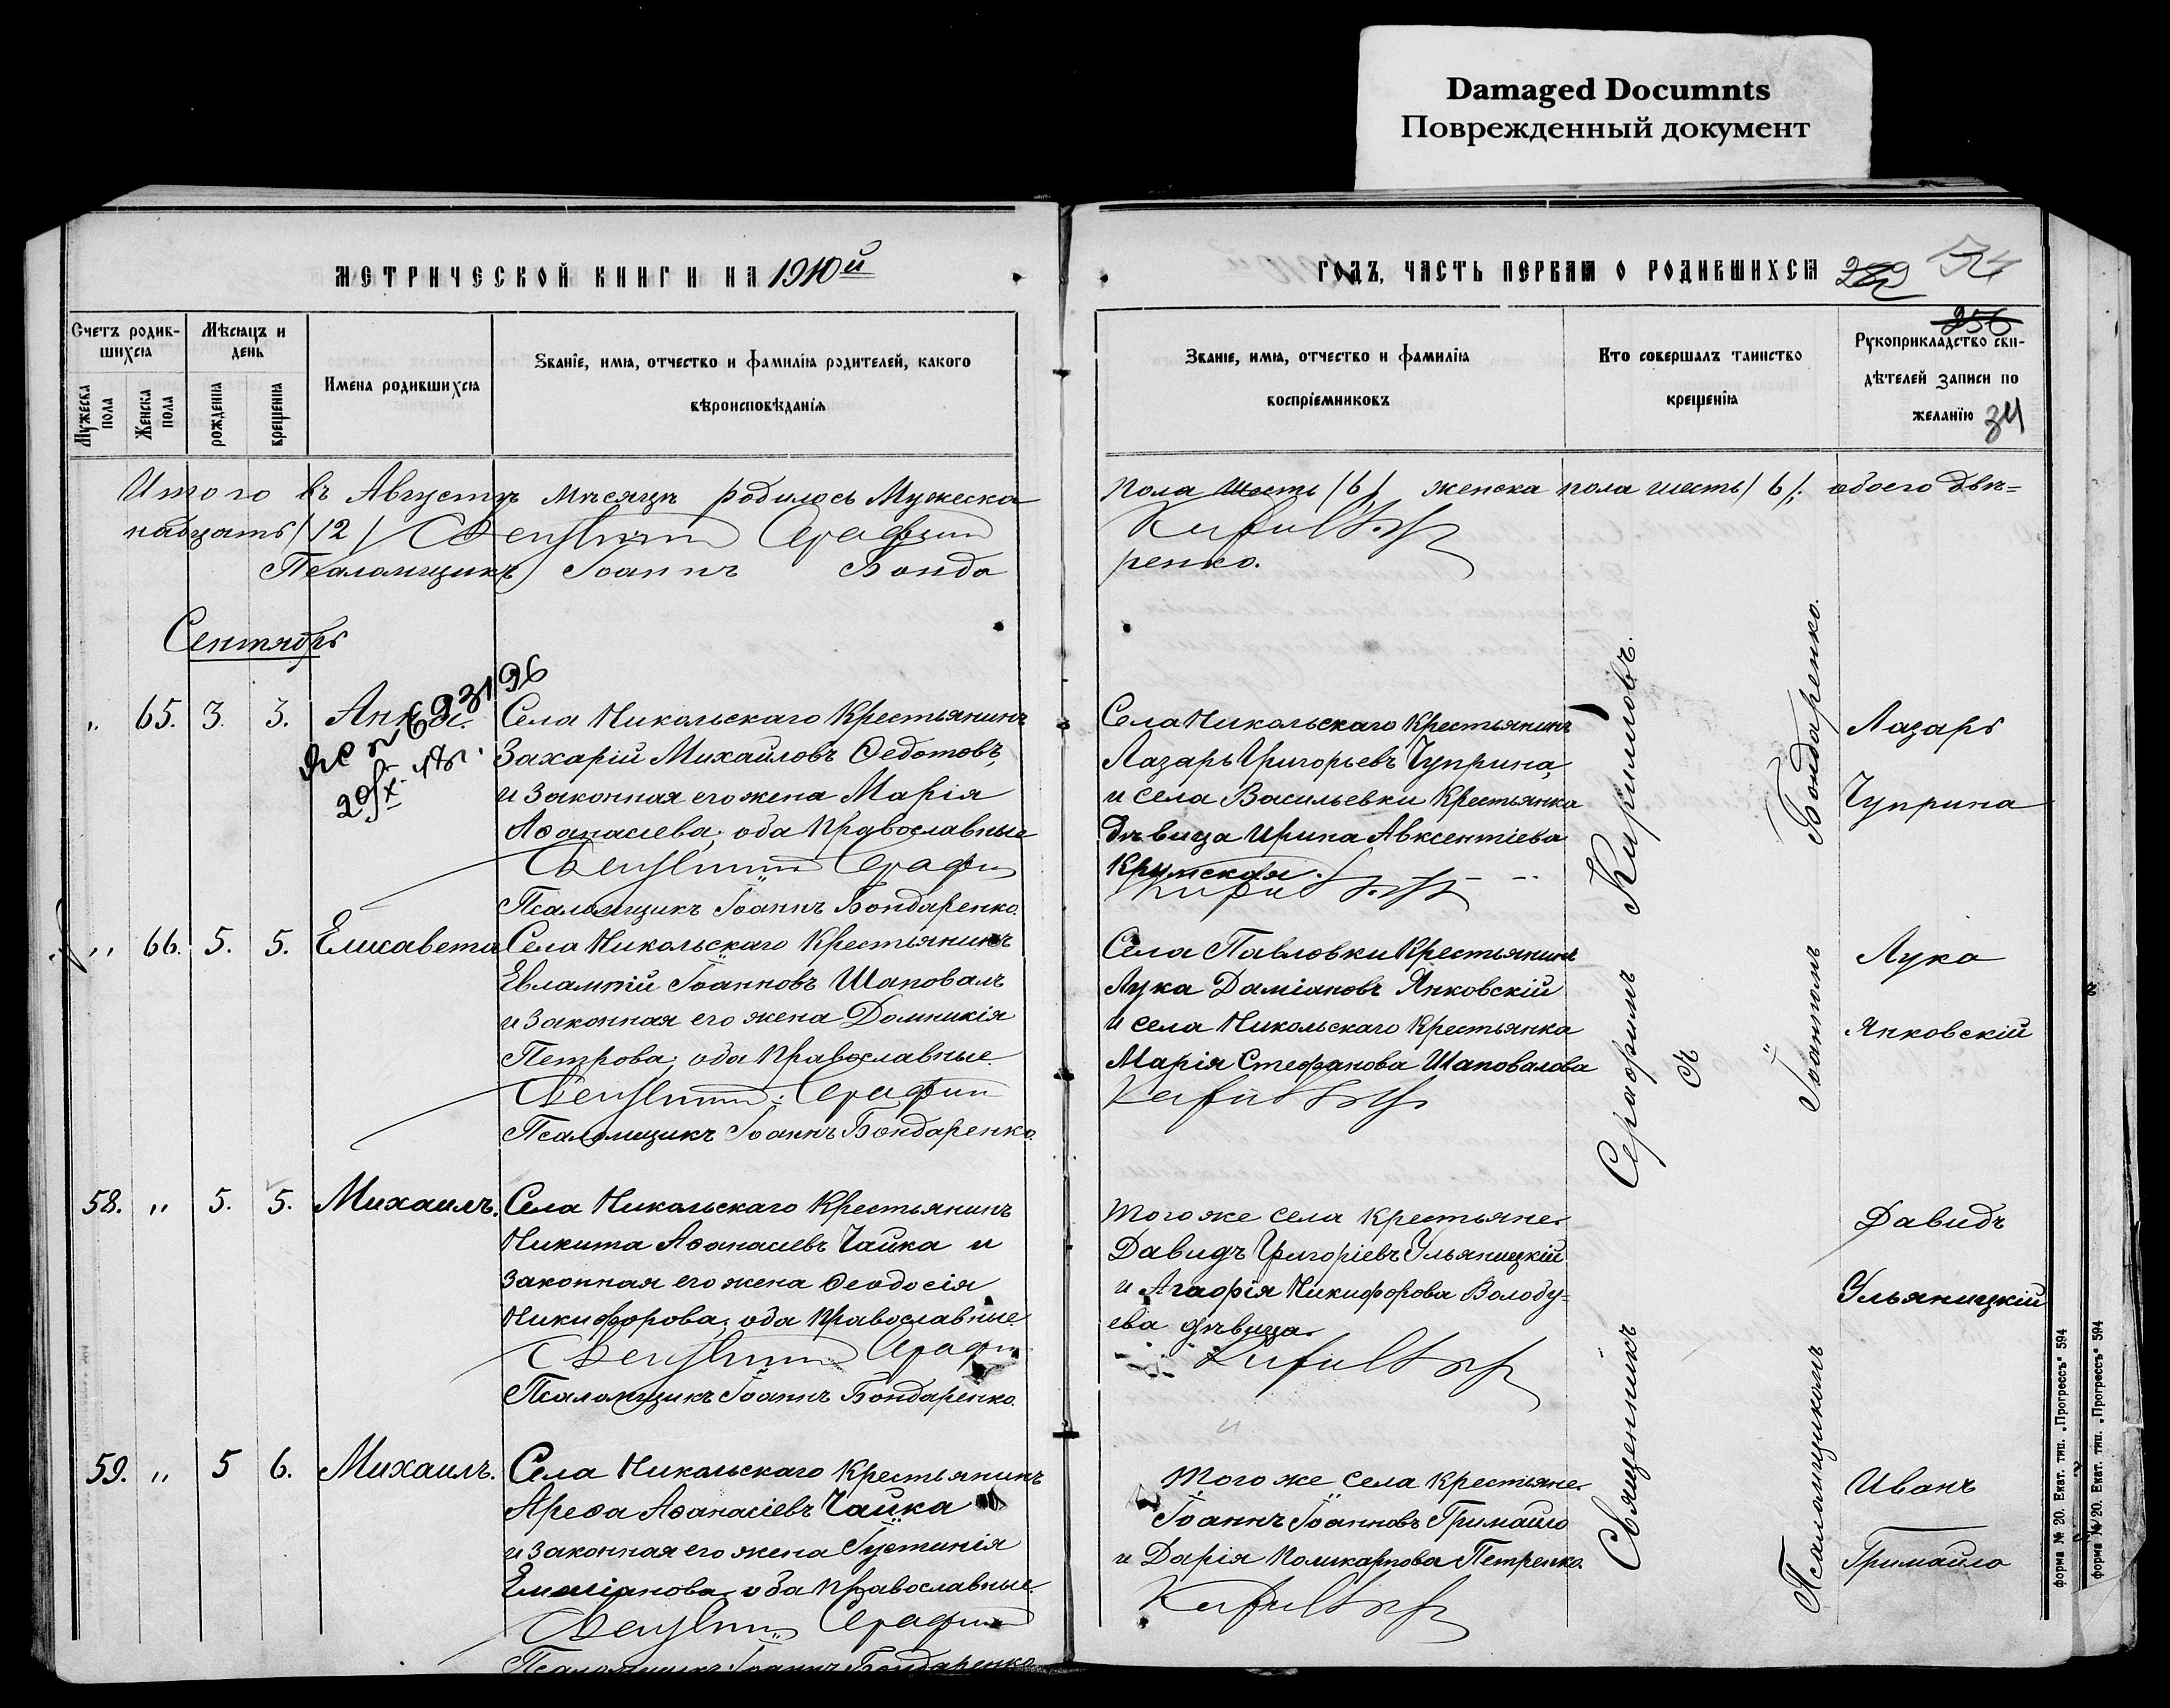 Damaged Documnts
Поврежденный документ
МЕТРИЧЕСКОЙ КНИГИ НА 1910й
Счетъ родив-
шихся
Мѣсяцъ и
день
Мужеска
пола
Женска
пола
рожденія
крещенія
Имена родившихся
Званіе, имя, отчество и фамилія родителей, какого
вѣроисповѣданія
Итого въ Августѣ мѣсяцѣ родилось Мужеска
надцать /12/ Священникъ Серафим
Псаломщикъ Іоаннъ Бонда
Сентябрь
" 65. 3. 3. Анна. Села Никольскаго Крестьянинъ
Захарій Михайловъ Ѳедотовъ,
и законная его жена Марія
Аѳанасіева, оба Православные
Священникъ Серафим
Псаломщикъ Іоаннъ Бондаренко.
" 66. 5. 5. Елисавета Села Никольскаго Крестьянинъ
Евлампій Іоанновъ Шаповалъ
и законная его жена Домникія
Петрова, оба Православные.
Священникъ Серафим
Псаломщикъ Іоаннъ Бондаренко.
58. " 5. 5. Михаилъ. Села Никольскаго Крестьянинъ
Никита Аѳанасіевъ Чайка и
законная его жена Ѳеодосія
Никифорова, оба Православные
Священникъ Серафим
Псаломщикъ Іоаннъ Бондаренко.
59. " 5 6. Михаилъ. Села Никольскаго Крестьянинъ
Ареѳа Аѳанасіевъ Чайка
и законная его жена Іустинія
Емиліанова, оба Православные.
Священникъ Серафим
Псаломщикъ Іоаннъ Бондаренко
ГОДЪ, ЧАСТЬ ПЕРВАЯ О РОДИВШИХСЯ
256
34
Званіе, имя, отчество и фамилія
воспріемниковъ
Кто совершалъ таинство
крещенія
Рукоприкладство сви-
дѣтелей записи по
желанію
пола шесть /6/ женска пола шесть /6/. обоего двѣ=
Кириловъ
ренко.
Села Никольскаго Крестьянинъ
Лазарь Григорьевъ Чуприна,
и села Васильевки Крестьянка
дѣвица Ирина Авксентіева
Кримская.
Кириловъ
Села Павловки Крестьянинъ
Лука Даміановъ Янковскій
и села Никольскаго Крестьянка
Марія Стефанова Шаповалова
Кириловъ
Того же села крестьяне.
Давидъ Григоріевъ Ульяницкій
и Агафія Никифорова Волобу=
ева дѣвица.
Кириловъ
Того же села крестьяне.
Іоаннъ Іоанновъ Гримайло
и Дарія Поликарпова Петренко.
Кириловъ
Священникъ Серафимъ Кириловъ.
съ
Псаломщикомъ Іоанномъ Бондаренко.
Лазарь
Чуприна
Лука
Янковскій
Давидъ
Ульяницкій
Иванъ
Гримайло
форма № 20. Екат. тип. „Прогрессъ" 594
форма № 20. Екат. тип. „Прогрессъ" 594